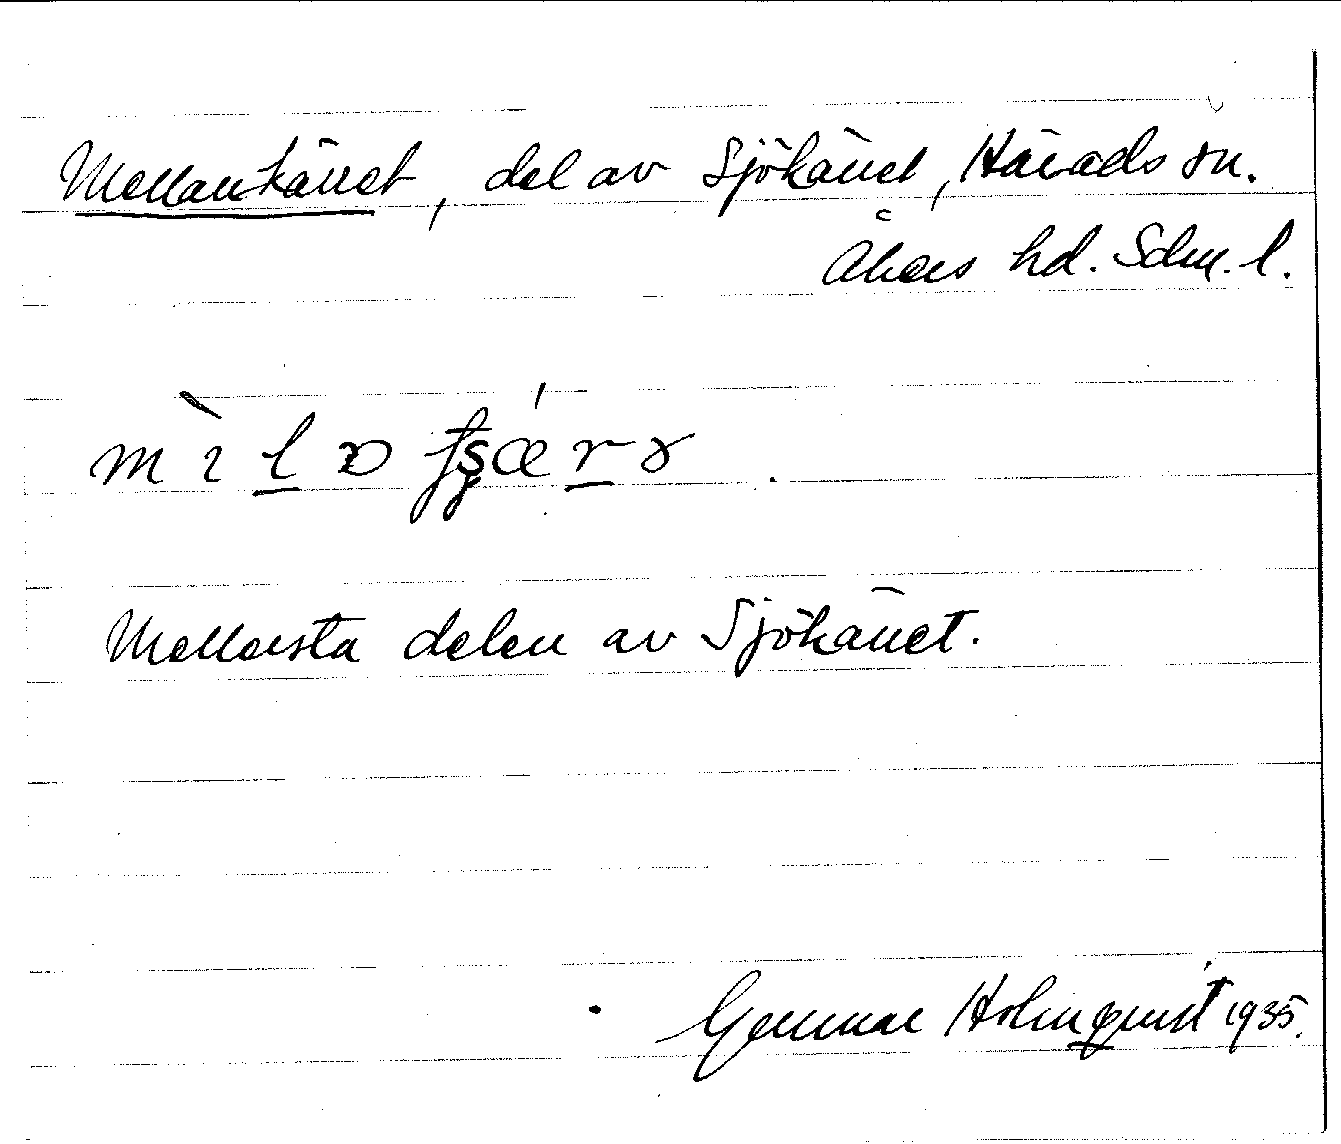 Mellankärret, del av Sjökärret, Härads sn.
Åkers hd. Sdm. l.
Mellersta delen av Sjökärret.
Gunnar Holmquist 1935.